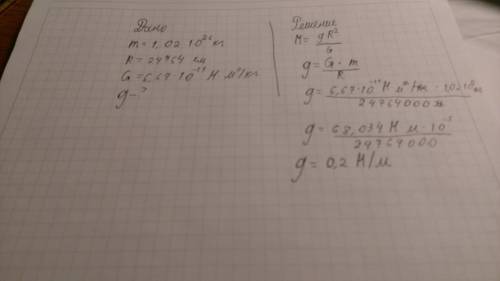 Дано
m = 1,02·10²⁶ кг
R = 24764 км
G = 6,67·10⁻¹¹ Н м²/кг
g - ?
Решение
M = gR²/G
g = G · m / R
g = 6,67·10⁻¹¹ Н м²/кг · 1,02·10²⁶ кг / 24764000 м
g = 68,034 Н м · 10⁻⁵ / 24764000
g = 0,2 Н/м